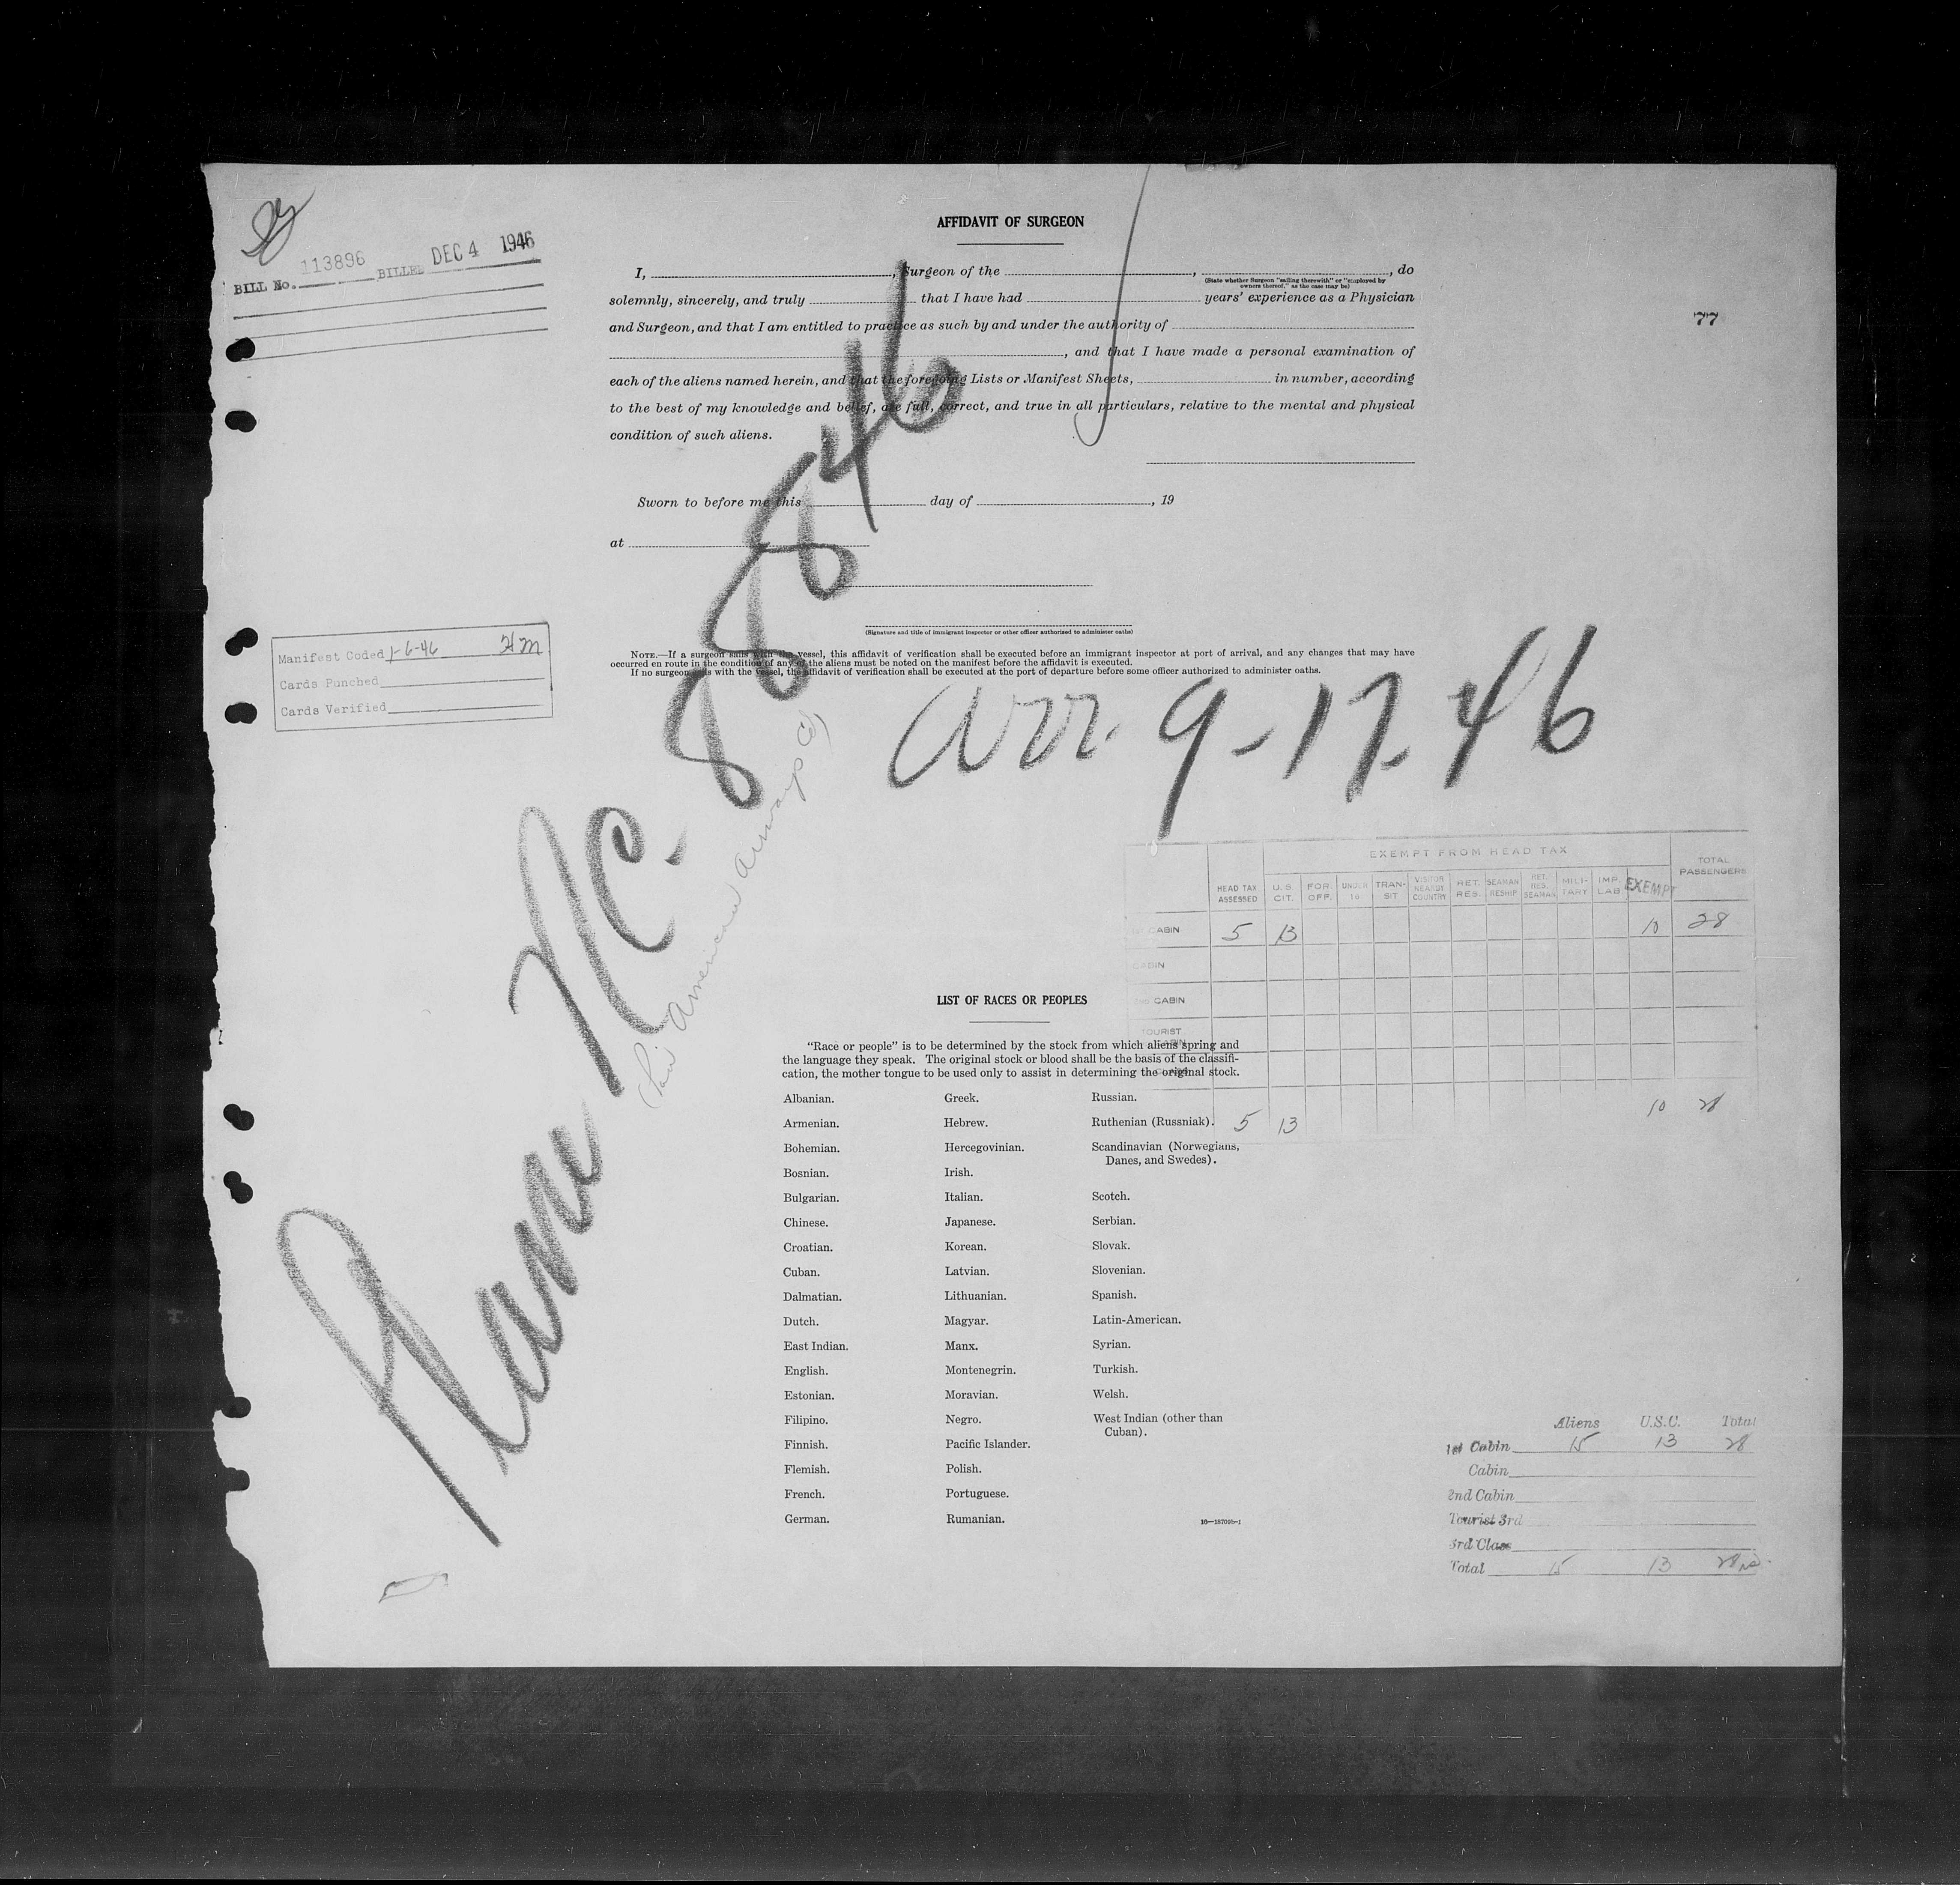 BILL No. 113896 BILLED DEC 4 1946
77
AFFIDAVIT OF SURGEON
I, , Surgeon of the , , do
(State whether Surgeon "sailing therewith" or "employed by
owners thereof," as the case may be)
solemnly, sincerely, and truly that I have had years' experience as a Physician
and Surgeon, and that I am entitled to practice as such by and under the authority of
, and that I have made a personal examination of
each of the aliens named herein, and that the foregoing Lists or Manifest Sheets, in number, according
to the best of my knowledge and belief, are full, correct, and true in all particulars, relative to the mental and physical
condition of such aliens.
Sworn to before me this day of , 19
at
(Signature and title of immigrant inspector or other officer authorized to administer oaths)
NOTE.—If a surgeon sails with the vessel, this affidavit of verification shall be executed before an immigrant inspector at port of arrival, and any changes that may have
occurred en route in the condition of any of the aliens must be noted on the manifest before the affidavit is executed.
If no surgeon sails with the vessel, the affidavit of verification shall be executed at the port of departure before some officer authorized to administer oaths.
Manifest Coded 1-6-46
Cards Punched
Cards Verified
Plane NC. 88846
(Pan American Airways Co)
Arr. 9-17-46
EXEMPT FROM HEAD TAX
HEAD TAX ASSESSED U.S. CIT. FOR. OFF. UNDER 16 TRAN-SIT VISITOR NEARBY COUNTRY RET. RES. SEAMAN RESHIP RET. RES. SEAMAN MILI-TARY IMP. LAB. EXEMPT TOTAL PASSENGERS
CABIN 5 13 10 28
CABIN
CABIN
TOURIST
5 13 10 28
LIST OF RACES OR PEOPLES
"Race or people" is to be determined by the stock from which aliens spring and
the language they speak. The original stock or blood shall be the basis of the classifi-
cation, the mother tongue to be used only to assist in determining the original stock.
Albanian.
Armenian.
Bohemian.
Bosnian.
Bulgarian.
Chinese.
Croatian.
Cuban.
Dalmatian.
Dutch.
East Indian.
English.
Estonian.
Filipino.
Finnish.
Flemish.
French.
German.
Greek.
Hebrew.
Hercegovinian.
Irish.
Italian.
Japanese.
Korean.
Latvian.
Lithuanian.
Magyar.
Manx.
Montenegrin.
Moravian.
Negro.
Pacific Islander.
Polish.
Portuguese.
Rumanian.
Russian.
Ruthenian (Russniak).
Scandinavian (Norwegians,
Danes, and Swedes).
Scotch.
Serbian.
Slovak.
Slovenian.
Spanish.
Latin-American.
Syrian.
Turkish.
Welsh.
West Indian (other than
Cuban).
Aliens U.S.C. Total
1st Cabin 15 13 28
Cabin
2nd Cabin
Tourist 3rd
3rd Class
Total 15 13 28